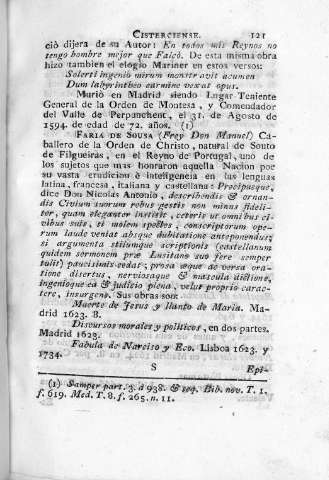 CISTERCIENSE. 121
ciò dijera de su Autor: En todos mis Reynos no
tengo hombre mejor que Falcó. De esta misma obra
hizo tambien el elogio Mariner en estos versos:
Solerti ingenio mirum monstravit acumen
Dum labyrintheo carmine vexat opus.
Murió en Madrid siendo Lugar Teniente
General de la Orden de Montesa, y Comendador
del Valle de Perpunchent, el 31. de Agosto de
1594. de edad de 72. años. (1)
FARIA DE SOUSA (Frey Don Manuel) Ca-
ballero de la Orden de Christo, natural de Souto
de Filgueiras, en el Reyno de Portugal, uno de
los sujetos que mas honraron aquella Nacion por
su vasta erudicion è inteligencia en las lenguas
latina, francesa, italiana y castellana: Præcipuaque,
dice Don Nicolas Antonio, describendis & ornan-
dis Civium suorum rebus gestis non minus fideli-
ter, quam eleganter institit, ceteris ut omnibus ci-
vibus suis, si molem spectes, conscriptorum ope-
rum laude veniat absque dubitatione anteponendus;
si argumenta stilumque scriptionis (castellanum
quidem sermonem præ Lusitano suo fere semper
tulit) paucissimis cedat; prosa æque ac versa ora-
tione disertus, nerviosaque & mascula dictione,
ingenioque ea & judicio plena, velut proprio carac-
tere, insurgens. Sus obras son:
Muerte de Jesus y llanto de Maria. Ma-
drid 1623. 8.
Discursos morales y politicos, en dos partes.
Madrid 1623.
Fabula de Narciso y Eco. Lisboa 1623. y
1734.
S Epi-
(1) Samper part. 3. à 938. & seq. Bib. nov. T. 1.
f. 619. Med. T. 8. f. 265. n. 11.